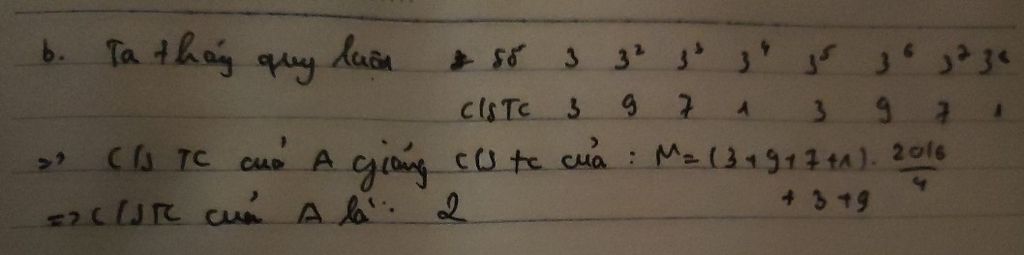 b. Ta thấy quy luật số 3 3² 3³ 3⁴ 3⁵ 3⁶ 3⁷ 3⁸
C/STC 3 9 7 1 3 9 7 1
=> C/S TC cuả A giống C/S tc của : M = (3+9+7+1). 2016/4
+ 3 + 9
=> C/STC cuả A là : 2